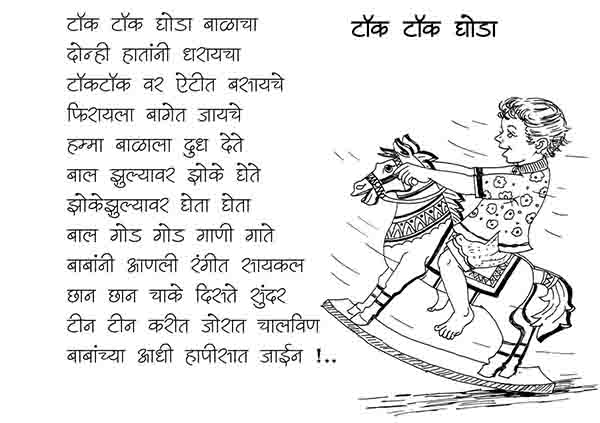 टॉक टॉक घोडा
टॉक टॉक घोडा बाळाचा
दोन्ही हातांनी धरायचा
टॉकटॉक वर ऐटीत बसायचे
फिरायला बागेत जायचे
हम्मा बाळाला दुध देते
बाल झुल्यावर झोके घेते
झोकेझुल्यावर घेता घेता
बाल गोड गोड गाणी गाते
बाबांनी आणली रंगीत सायकल
छान छान चाके दिसते सुंदर
टीन टीन करीत जोरात चालविण
बाबांच्या आधी हापीसात जाईन !..